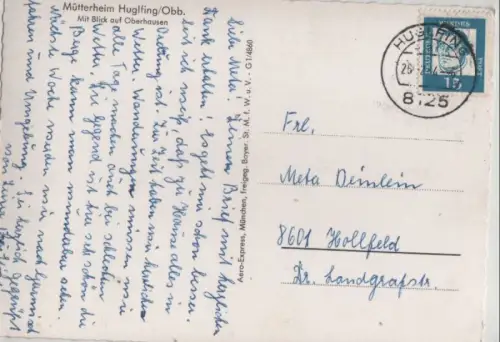 Mütterheim Huglfing/Obb.
Mit Blick auf Oberhausen
Liebe Meta! Deinen Brief mit herzlichen
Dank erhalten! Es geht mir schon besser
seit ich weiß, daß zu Hause alles in
Ordnung ist. Zur Zeit haben wir herrliches
Wetter. Wanderungen müssen wir
alle Tage machen auch bei schlechten
Wetter. Die Gegend ist hier sehr schön die
Berge kann man wunderbar sehen.
Nächste Woche werden wir nach Garmisch
fahren und Umgebung. Sei herzlich gegrüßt
von Deiner
Aero-Express, München, Freigeg. Bayer. St. M. f. W. u. V. - G 1/4860
HUGLFING
8125
DEUTSCHE BUNDESPOST
15
Frl.
Meta Deinlein
8601 Hollfeld
Dr. Landgrafstr.